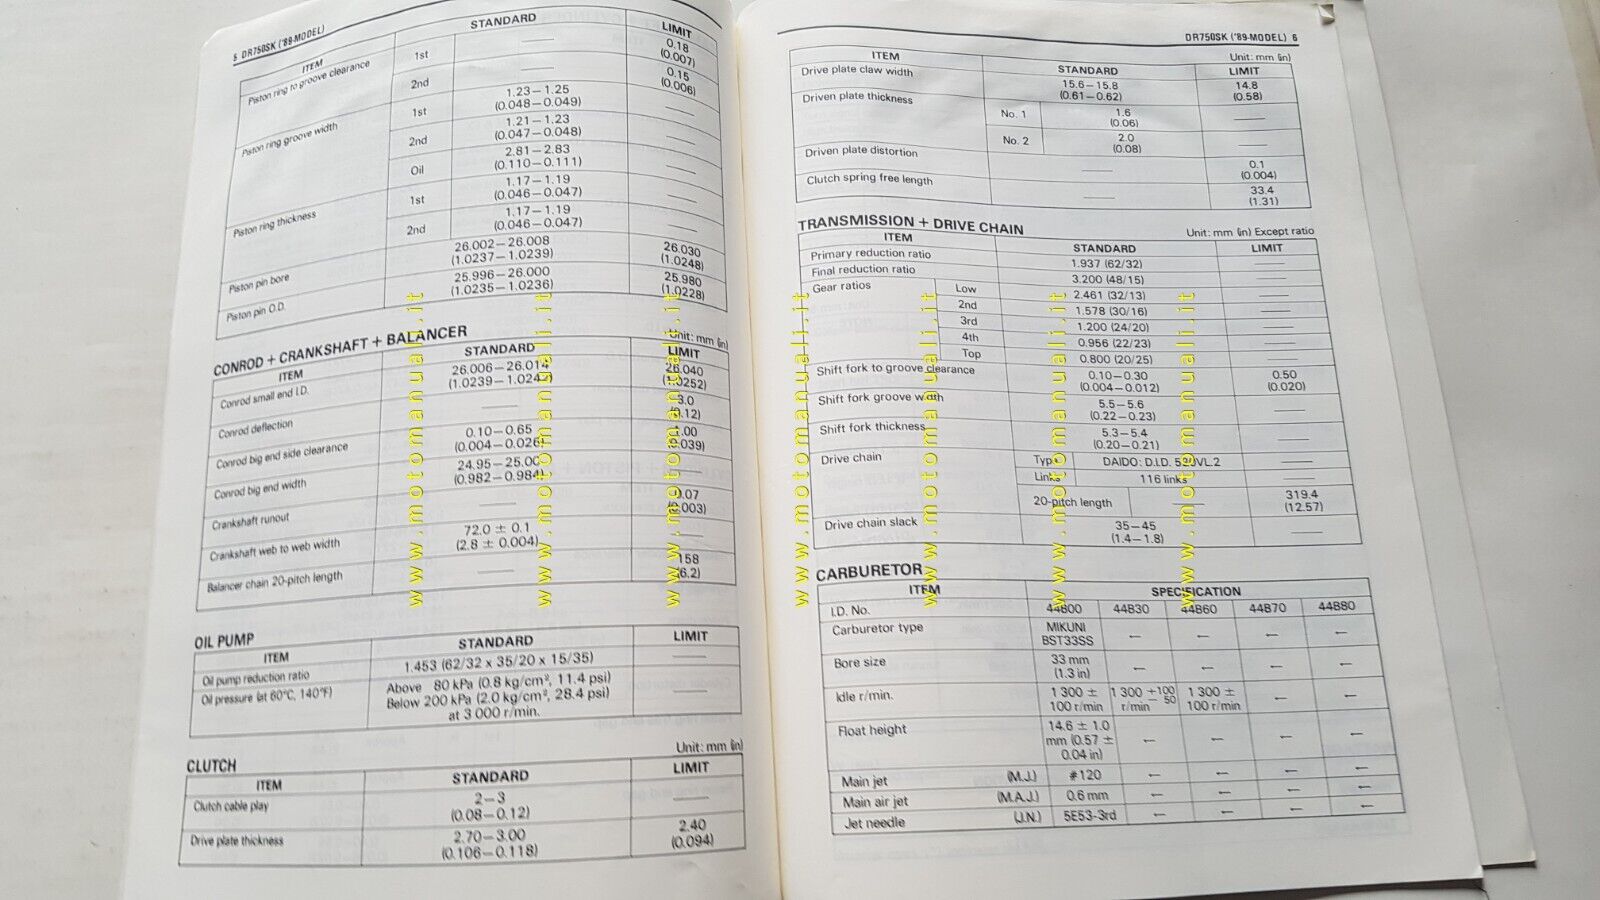 5 DR750SK ('89-MODEL)
ITEM STANDARD LIMIT
Piston ring to groove clearance 1st —— 0.18
(0.007)
2nd —— 0.15
(0.006)
Piston ring groove width 1st 1.23–1.25
(0.048–0.049) ——
2nd 1.21–1.23
(0.047–0.048) ——
Oil 2.81–2.83
(0.110–0.111) ——
Piston ring thickness 1st 1.17–1.19
(0.046–0.047) ——
2nd 1.17–1.19
(0.046–0.047) ——
Piston pin bore 26.002–26.008 26.030
(1.0237–1.0239) (1.0248)
Piston pin O.D. 25.996–26.000 25.980
(1.0235–1.0236) (1.0228)
CONROD + CRANKSHAFT + BALANCER
Unit: mm (in)
ITEM STANDARD LIMIT
Conrod small end I.D. 26.006–26.014 26.040
(1.0239–1.0242) (1.0252)
Conrod deflection —— 3.0
(0.12)
Conrod big end side clearance 0.10–0.65 1.00
(0.004–0.026) (0.039)
Conrod big end width 24.95–25.00
(0.982–0.984) ——
Crankshaft runout —— 0.07
(0.003)
Crankshaft web to web width 72.0 ± 0.1
(2.8 ± 0.004) ——
Balancer chain 20-pitch length —— 158
(6.2)
OIL PUMP
ITEM STANDARD LIMIT
Oil pump reduction ratio 1.453 (62/32 x 35/20 x 15/35) ——
Oil pressure (at 60°C, 140°F) Above 80 kPa (0.8 kg/cm², 11.4 psi)
Below 200 kPa (2.0 kg/cm², 28.4 psi)
at 3 000 r/min. ——
CLUTCH
Unit: mm (in)
ITEM STANDARD LIMIT
Clutch cable play 2–3
(0.08–0.12) ——
Drive plate thickness 2.70–3.00 2.40
(0.106–0.118) (0.094)
DR750SK ('89-MODEL) 6
Unit: mm (in)
ITEM STANDARD LIMIT
Drive plate claw width 15.6–15.8 14.8
(0.61–0.62) (0.58)
Driven plate thickness No. 1 1.6
(0.06) ——
No. 2 2.0
(0.08) ——
Driven plate distortion —— 0.1
(0.004)
Clutch spring free length —— 33.4
(1.31)
TRANSMISSION + DRIVE CHAIN
Unit: mm (in) Except ratio
ITEM STANDARD LIMIT
Primary reduction ratio 1.937 (62/32) ——
Final reduction ratio 3.200 (48/15) ——
Gear ratios Low 2.461 (32/13) ——
2nd 1.578 (30/16) ——
3rd 1.200 (24/20) ——
4th 0.956 (22/23) ——
Top 0.800 (20/25) ——
Shift fork to groove clearance 0.10–0.30 0.50
(0.004–0.012) (0.020)
Shift fork groove width 5.5–5.6
(0.22–0.23) ——
Shift fork thickness 5.3–5.4
(0.20–0.21) ——
Drive chain Type DAIDO: D.I.D. 520VL.2 ——
Links 116 links ——
20-pitch length —— 319.4
(12.57)
Drive chain slack 35–45
(1.4–1.8) ——
CARBURETOR
ITEM SPECIFICATION
I.D. No. 44B00 44B30 44B60 44B70 44B80
Carburetor type MIKUNI
BST33SS ← ← ← ←
Bore size 33 mm
(1.3 in) ← ← ← ←
Idle r/min. 1 300 ± 1 300 +100 1 300 ± ← ←
100 r/min r/min − 50 100 r/min
Float height 14.6 ± 1.0
mm (0.57 ±
0.04 in) ← ← ← ←
Main jet (M.J.) #120 ← ← ← ←
Main air jet (M.A.J.) 0.6 mm ← ← ← ←
Jet needle (J.N.) 5E53-3rd ← ← ← ←
www.motomanuali.it
www.motomanuali.it
www.motomanuali.it
www.motomanuali.it
www.motomanuali.it
www.motomanuali.it
www.motomanuali.it